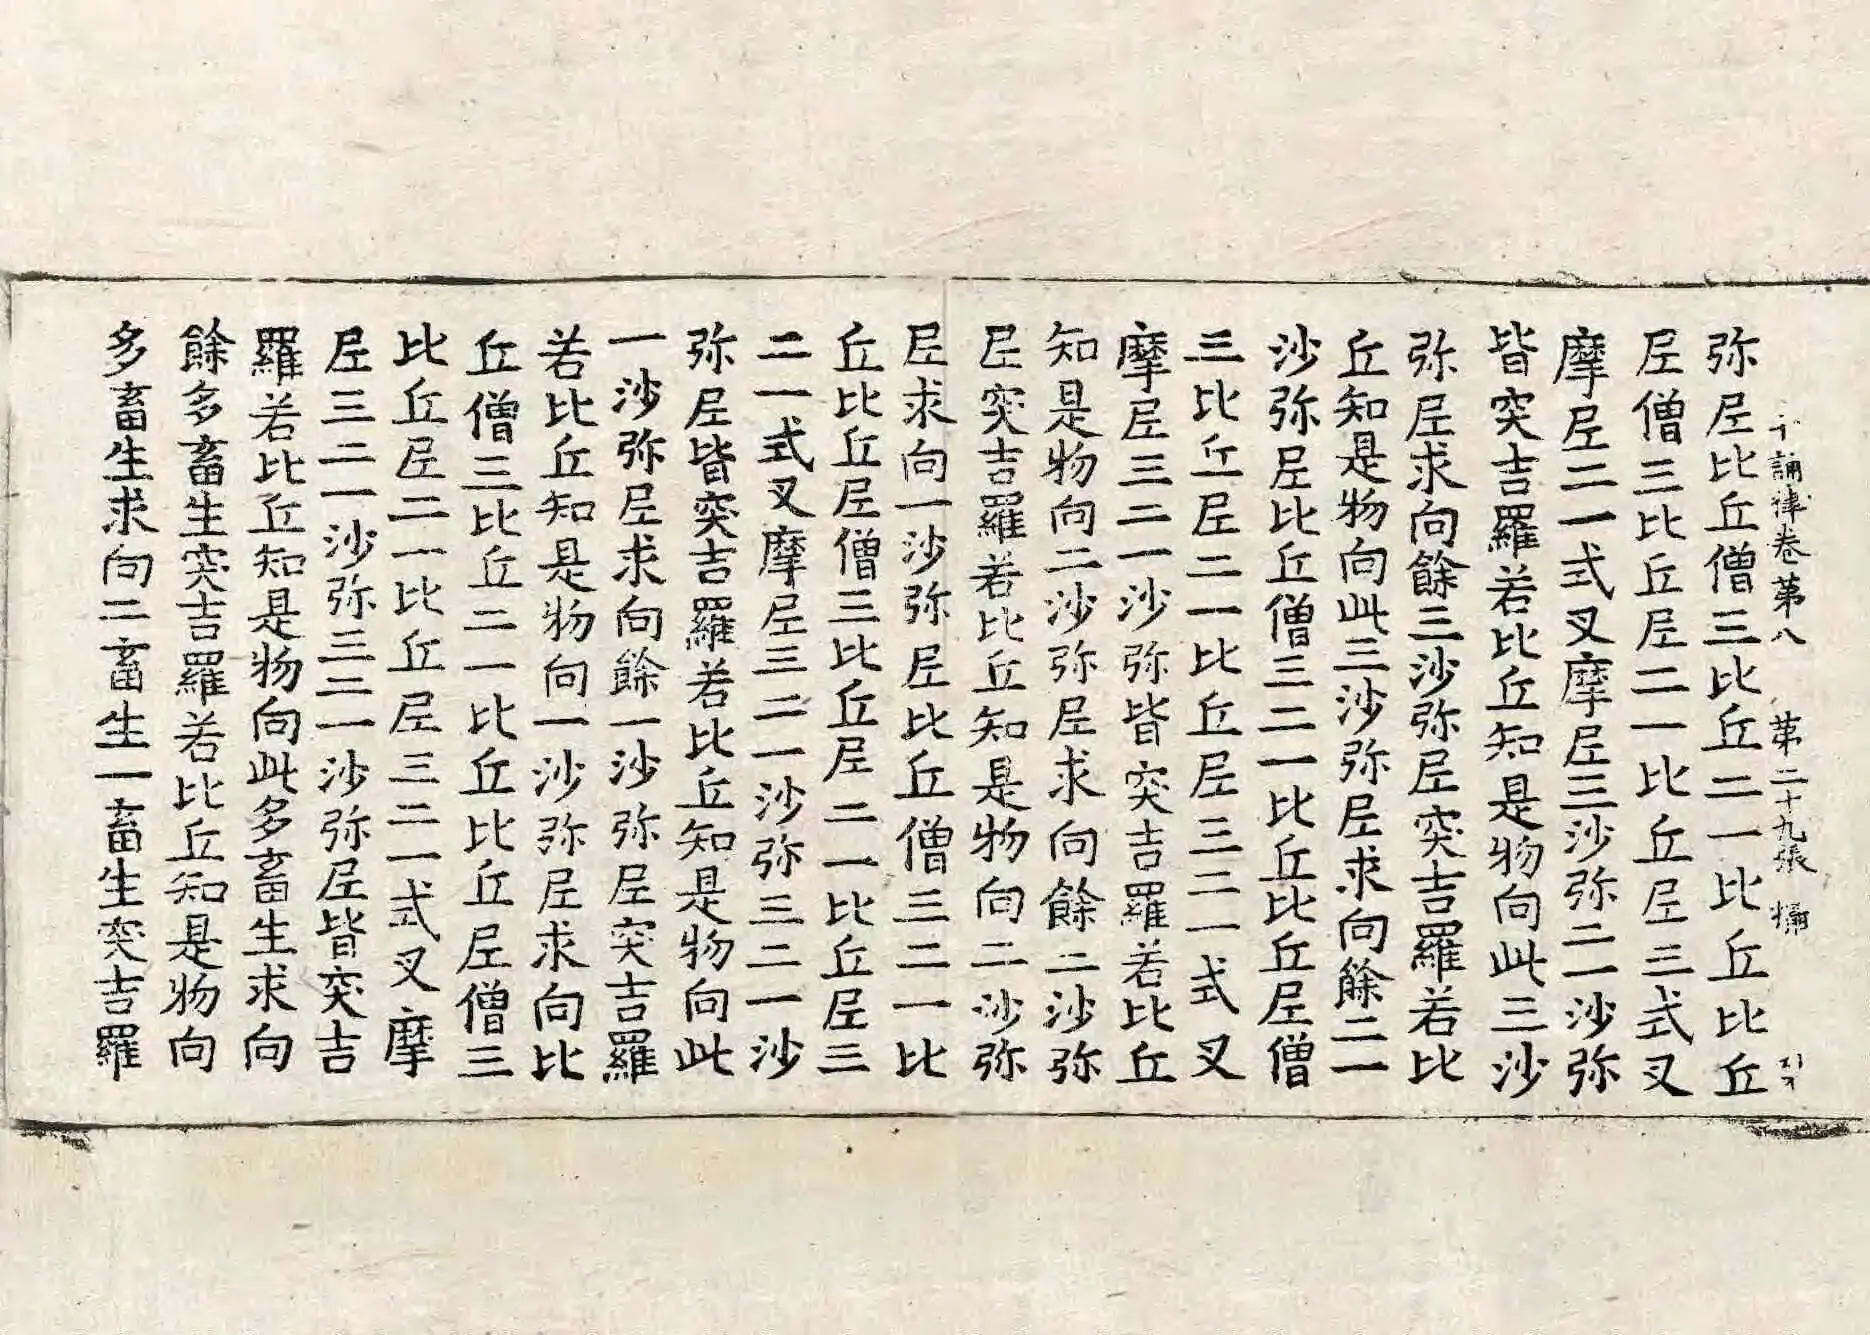 十誦律卷第八 第二十九張 攝
弥尼比丘僧三比丘二一比丘比丘
尼僧三比丘尼二一比丘尼三式叉
摩尼二一式叉摩尼三沙弥二一沙弥
皆突吉羅若比丘知是物向此三沙
弥尼求向餘三沙弥尼突吉羅若比
丘知是物向此三沙弥尼求向餘二一
沙弥尼比丘僧三二一比丘比丘尼僧
三比丘尼二一比丘尼三二一式叉
摩尼三二一沙弥皆突吉羅若比丘
知是物向二沙弥尼求向餘二沙弥
尼突吉羅若比丘知是物向二沙弥
尼求向一沙弥尼比丘僧三二一比
丘比丘尼僧三比丘尼二一比丘尼三
二一式叉摩尼三二一沙弥三二一沙
弥尼皆突吉羅若比丘知是物向此
一沙弥尼求向餘一沙弥尼突吉羅
若比丘知是物向一沙弥尼求向比
丘僧三比丘二一比丘比丘尼僧三
比丘尼二一比丘尼三二一式叉摩
尼三二一沙弥三二一沙弥尼皆突吉
羅若比丘知是物向此多畜生求向
餘多畜生突吉羅若比丘知是物向
多畜生求向二畜生一畜生突吉羅